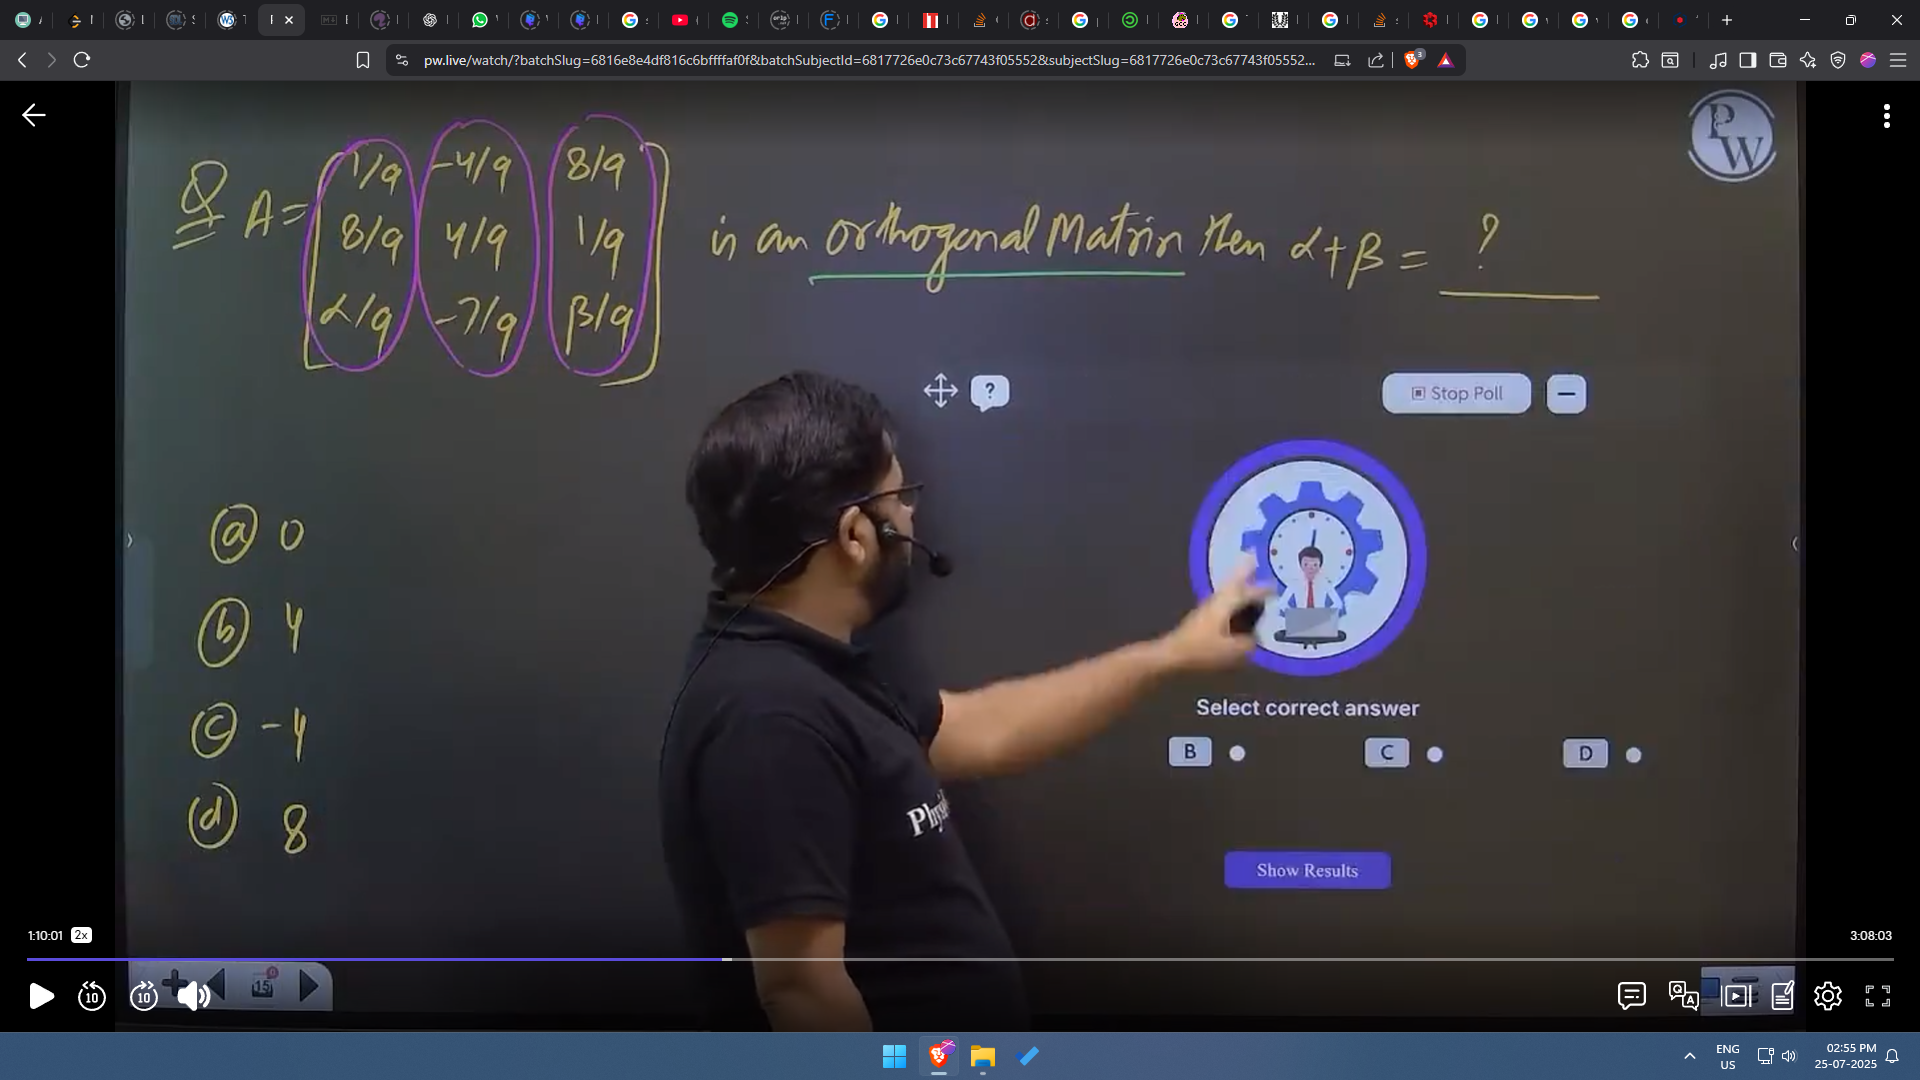 pw.live/watch/?batchSlug=6816e8e4df816c6bffffaf0f&batchSubjectId=6817726e0c73c67743f05552&subjectSlug=6817726e0c73c67743f05552...
PW
Q A = [ 1/9 -4/9 8/9
8/9 4/9 1/9 is an orthogonal Matrix then α+β = ?
α/9 -7/9 β/9 ]
Stop Poll
ⓐ 0
ⓑ 4
ⓒ -4
ⓓ 8
Select correct answer
B C D
Show Results
1:10:01 2x 3:08:03
10 10 15
ENG
US
02:55 PM
25-07-2025